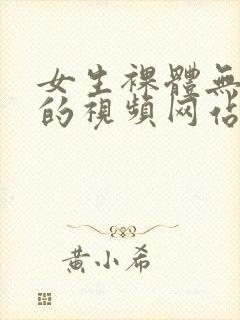 女生裸體無
的視頻网佔
黃小希